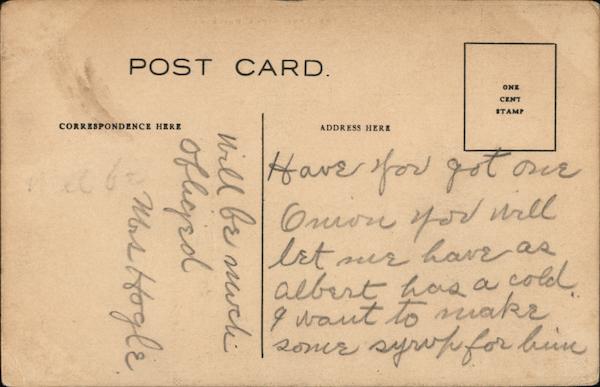 POST CARD.
ONE
CENT
STAMP
CORRESPONDENCE HERE
ADDRESS HERE
Have you got one
Onion you will
let me have as
albert has a cold.
I want to make
some syrup for him
Will be much
Obliged
Mrs Hogle.
Will be